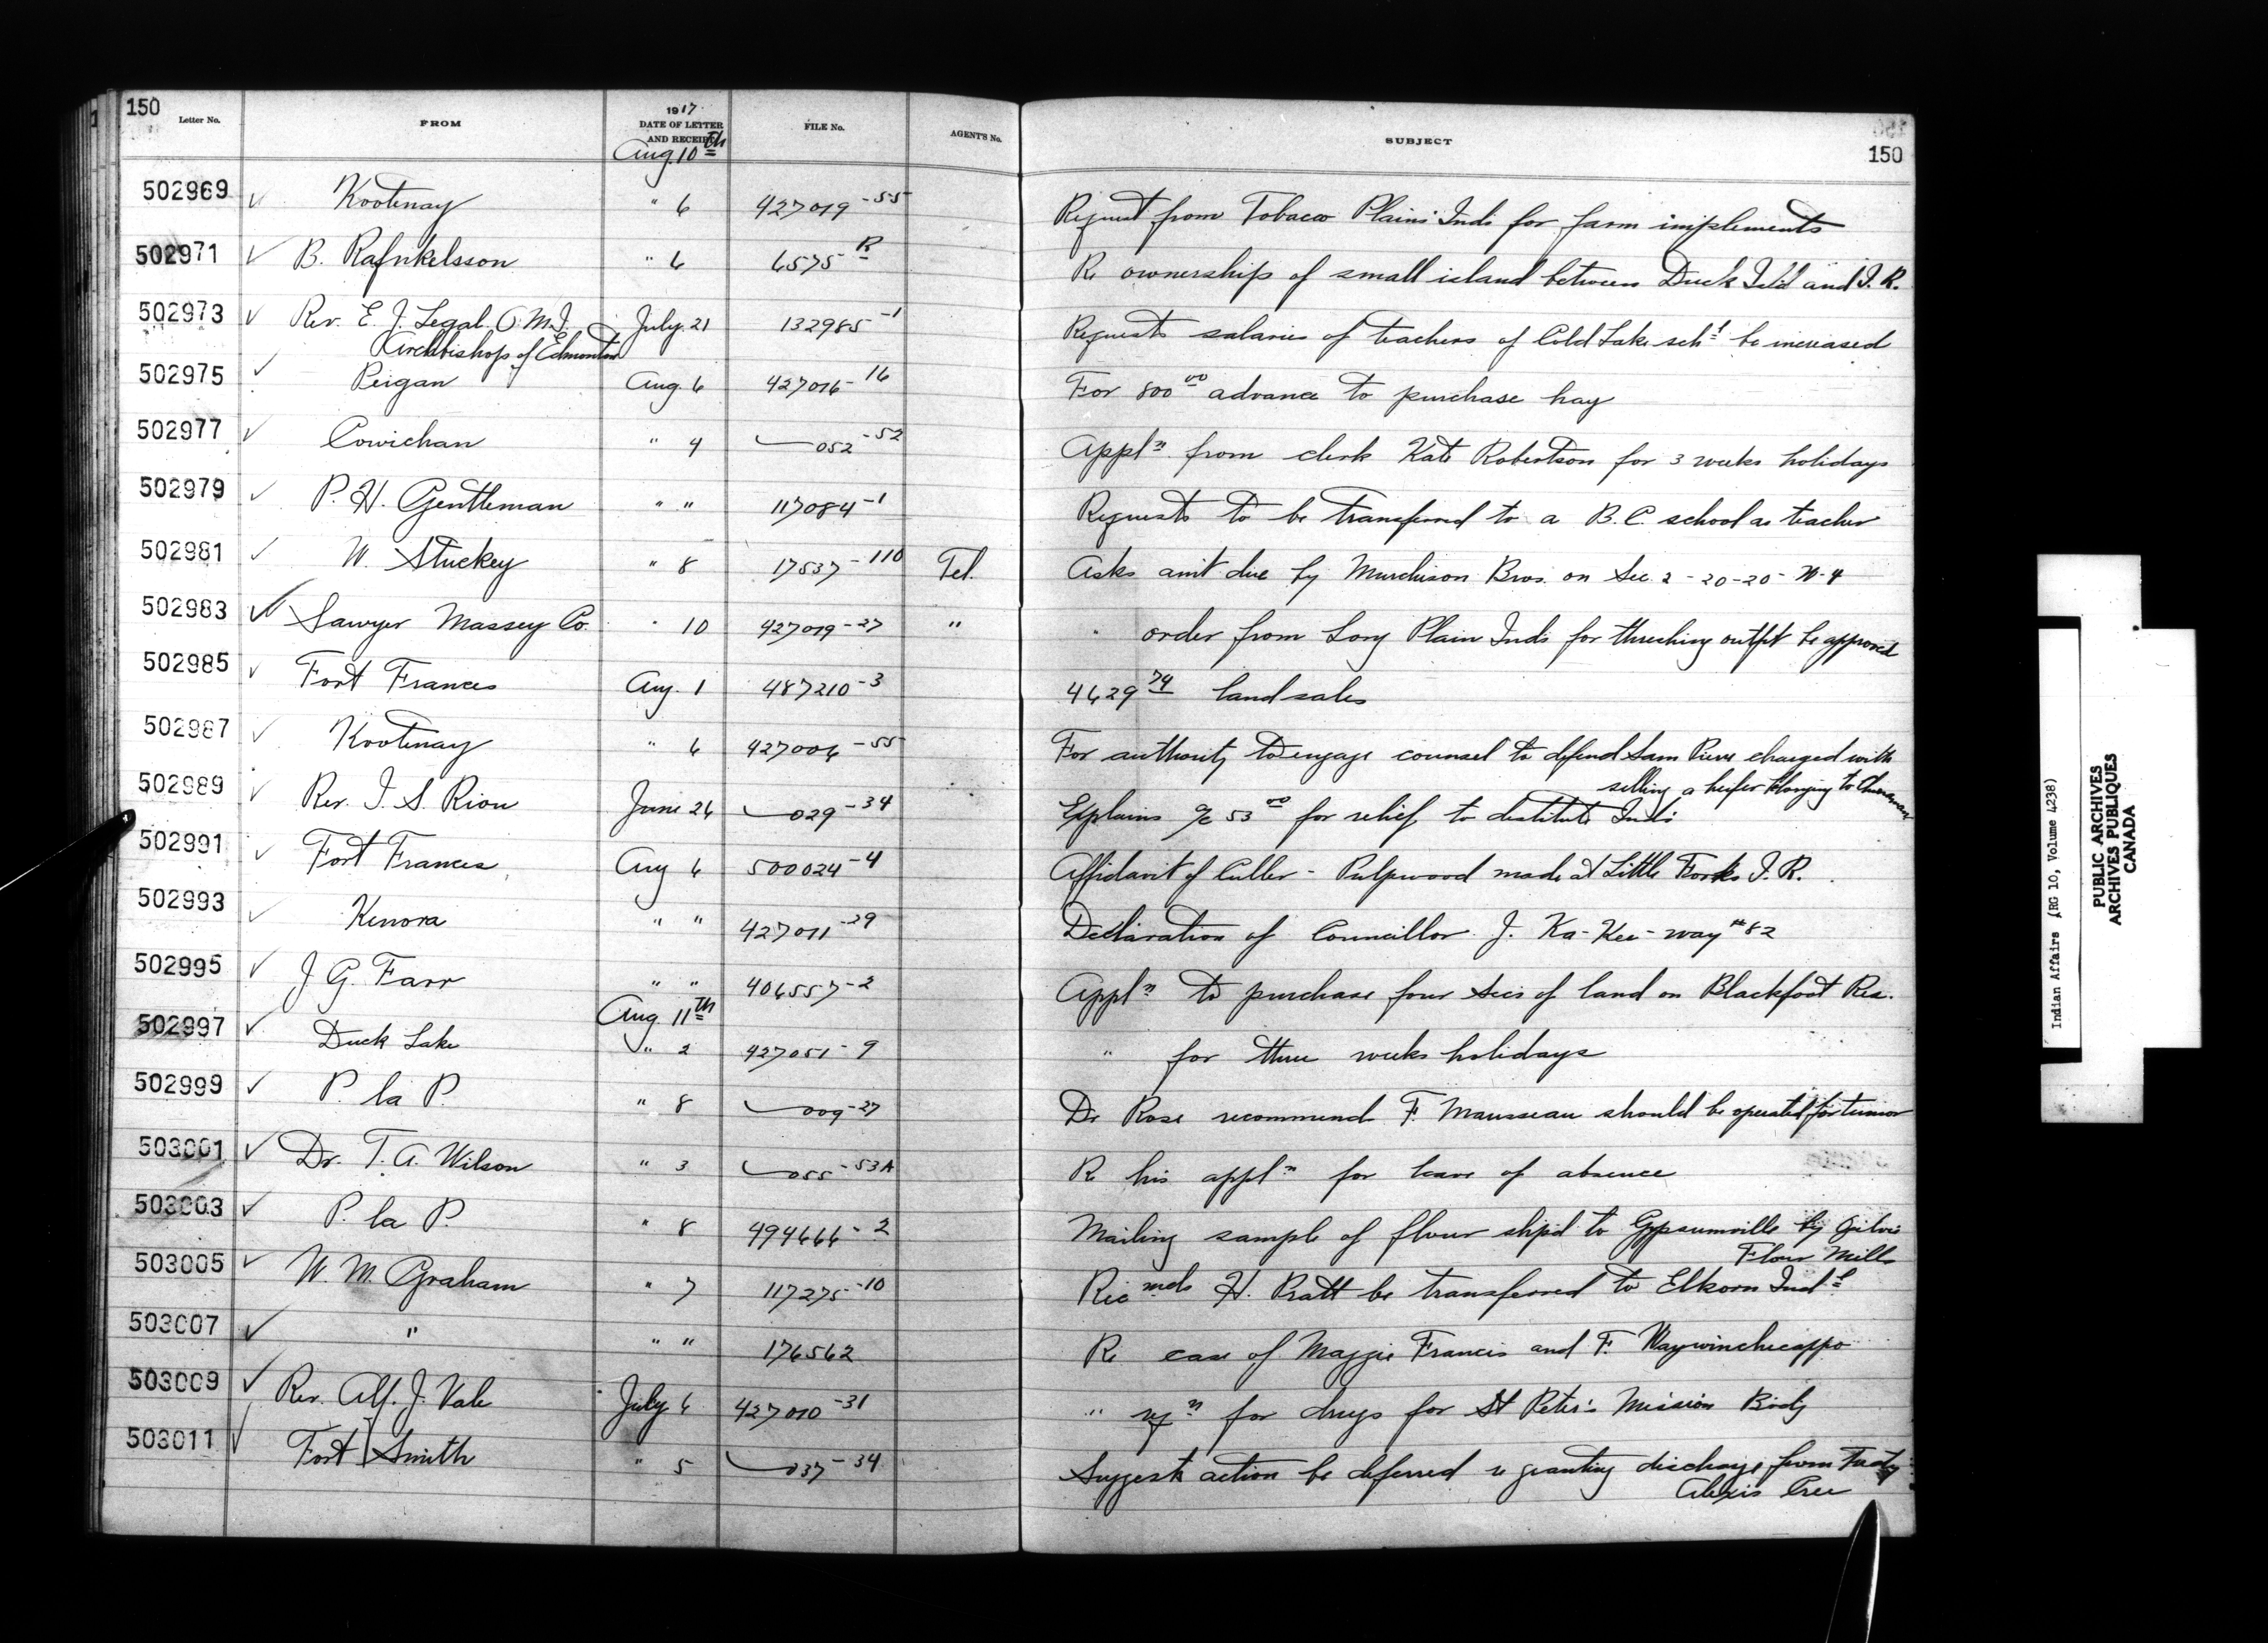 150
Letter No. FROM 1917 DATE OF LETTER AND RECEIPT FILE No. AGENT'S No. SUBJECT 150
Aug. 10th
502969 ✓ Kootenay " 6 427019-55 Request from Tobacco Plains Inds for farm implements
502971 ✓ B. Rafnkelsson " 6 6575 R Re ownership of small island between Duck Isl'd and I.R.
502973 ✓ Rev. E. J. Legal O.M.I. July 21 132985-1 Requests salaries of teachers of Cold Lake schl be increased
Archbishop of Edmonton
502975 ✓ Peigan Aug. 6 427016-16 For 800 00 advance to purchase hay
502977 ✓ Cowichan " 4 052-52 Appln from clerk Kate Robertson for 3 weeks holidays
502979 ✓ P. H. Gentleman " " 117084-1 Requests to be transferred to a B.C. school as teacher
502981 ✓ W. Stuckey " 8 17537-110 Tel. Asks am't due by Murchison Bros. on Sec. 2-20-20-W-4
502983 ✓ Sawyer Massey Co. " 10 427019-27 " " order from Long Plain Inds for threshing outfit be approved
502985 ✓ Fort Frances Aug. 1 487210-3 4629 74 land sales
502987 ✓ Kootenay " 6 427006-55 For authority to engage counsel to defend Sam Pierre charged with
selling a heifer belonging to Chinaman
502989 ✓ Rev. J. S. Rion June 26 029-34 Explains a/c 53 00 for relief to destitute Inds
502991 ✓ Fort Frances Aug 6 500024-4 Affidavit of Culler - Pulpwood made at Little Forks I.R.
502993 ✓ Kenora " " 427011-29 Declaration of Councillor J. Ka-Kee-way #82
502995 ✓ J G. Farr " " 406557-2 Appln to purchase four secs of land on Blackfoot Res.
Aug. 11th
502997 ✓ Duck Lake " 2 427051-9 " for three weeks holidays
502999 ✓ P. la P. " 8 009-27 Dr Rose recommend F. Mausseau should be operated for tumor
503001 ✓ Dr. T. A. Wilson " 3 055-53A Re his appln for leave of absence
503003 ✓ P. la P. " 8 494666-2 Mailing sample of flour ship'd to Gypsumville by Ogilvie
Flour Mills
503005 ✓ W. M. Graham " 7 117275-10 Recmds H. Pratt be transferred to Elkorn Indl
503007 ✓ " " " 176562 Re case of Maggie Francis and F. Waywinchecappo
503009 ✓ Rev. Alf. J. Vale July 6 427010-31 " reqn for drugs for St Peter's Mission Bridg
503011 ✓ Fort Smith " 5 037-34 Suggests action be deferred re granting discharge from Treaty
Alexis Cree
Indian Affairs (RG 10, Volume 4238)
PUBLIC ARCHIVES
ARCHIVES PUBLIQUES
CANADA